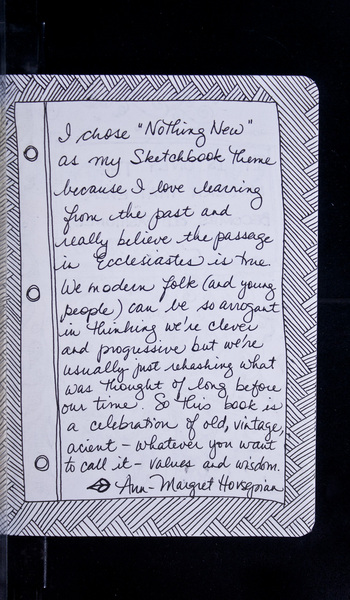 I chose "Nothing New"
as my Sketchbook theme
because I love learning
from the past and
really believe the passage
in Ecclesiastes is true.
We modern folk (and young
people) can be so arrogant
in thinking we're clever
and progressive but we're
usually just rehashing what
was thought of long before
our time. So this book is
a celebration of old, vintage,
acient - whatever you want
to call it - values and wisdom.
Ann-Margret Hovsepian